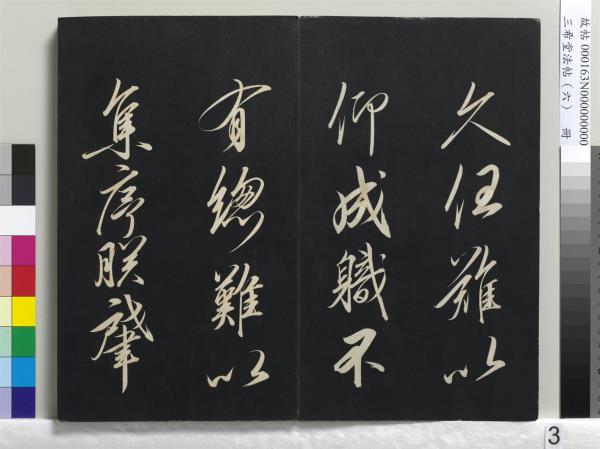 久任難以
仰成職不
有總難以
集序朕肇
故帖 000163N000000000
三希堂法帖(六) 冊
3